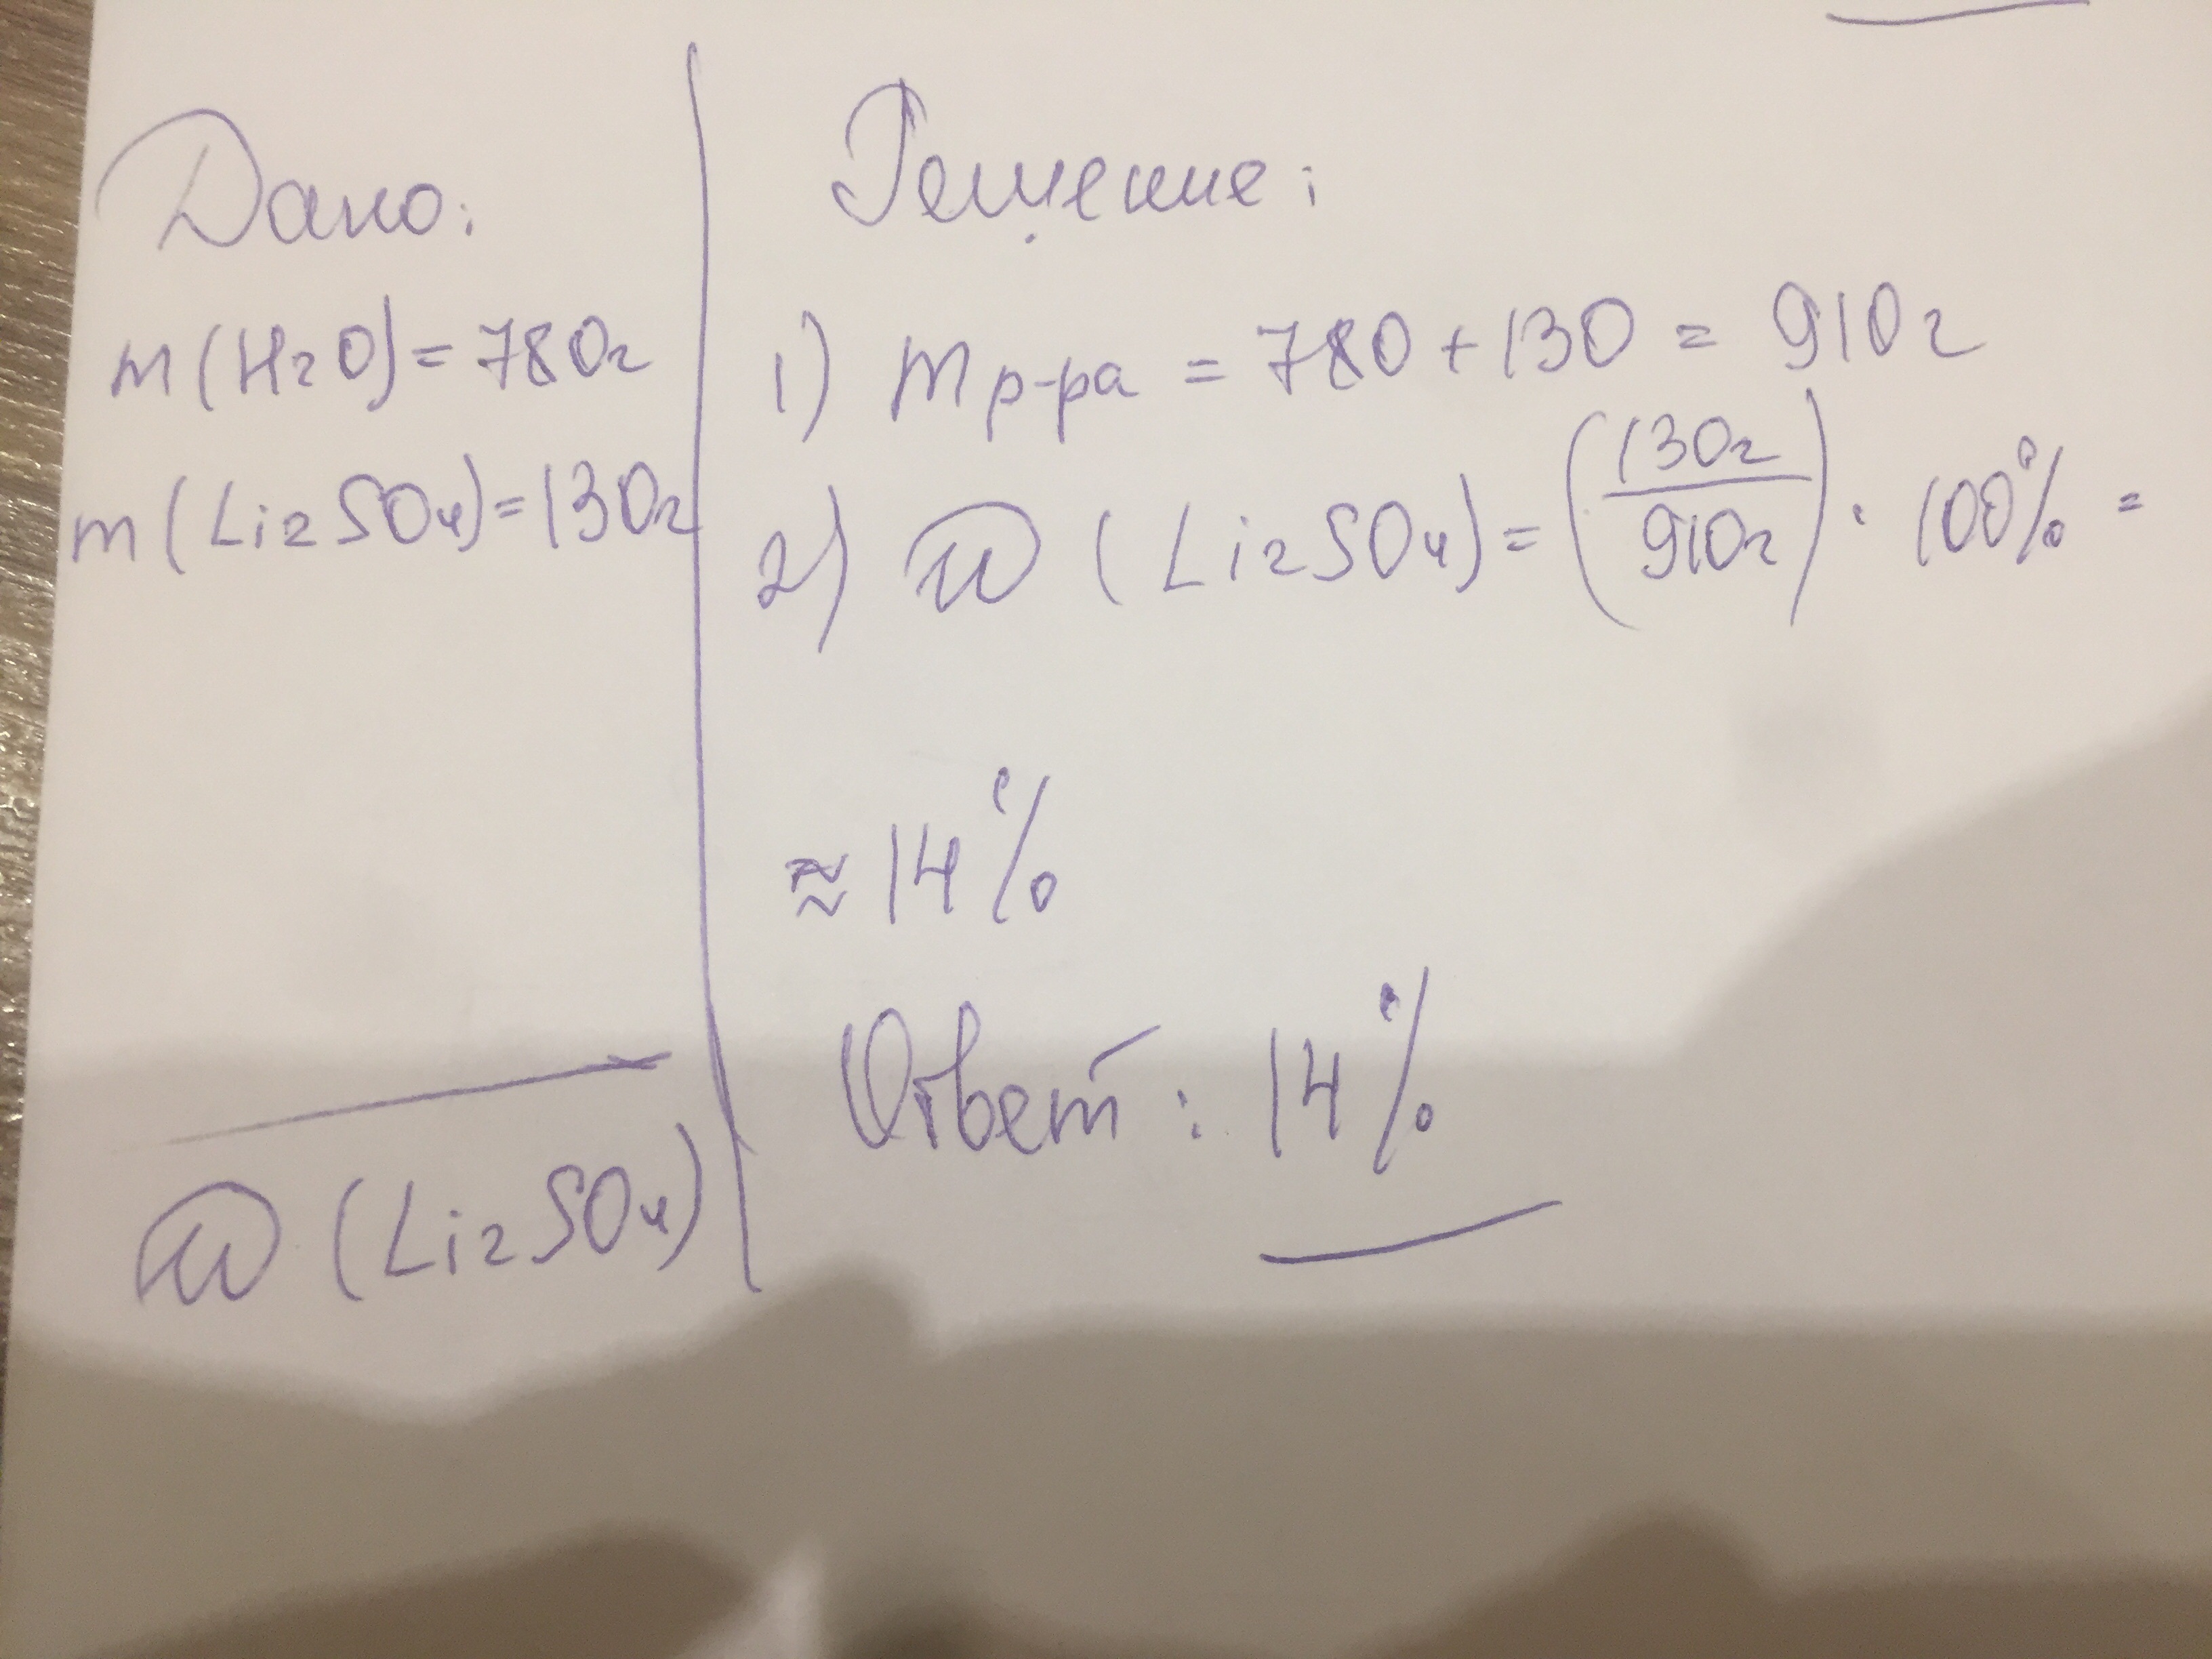 Дано:
m(H2O)=780г
m(Li2SO4)=130г
ω (Li2SO4)
Решение:
1) mр-ра = 780+130 = 910г
2) ω (Li2SO4)= (130г/910г) · 100% =
≈ 14%
Ответ: 14%